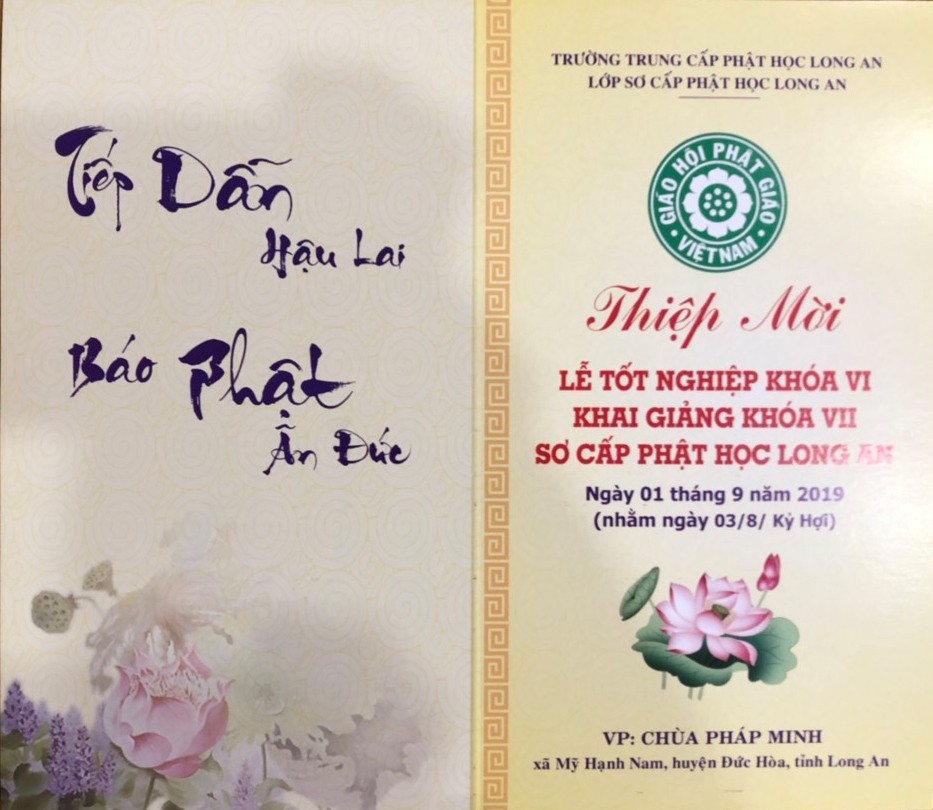 Tiếp Dẫn
Hậu Lai
Báo Phật
Ân Đức
TRƯỜNG TRUNG CẤP PHẬT HỌC LONG AN
LỚP SƠ CẤP PHẬT HỌC LONG AN
GIÁO HỘI PHẬT GIÁO
VIỆT NAM
Thiệp Mời
LỄ TỐT NGHIỆP KHÓA VI
KHAI GIẢNG KHÓA VII
SƠ CẤP PHẬT HỌC LONG AN
Ngày 01 tháng 9 năm 2019
(nhằm ngày 03/8/ Kỷ Hợi)
VP: CHÙA PHÁP MINH
xã Mỹ Hạnh Nam, huyện Đức Hòa, tỉnh Long An